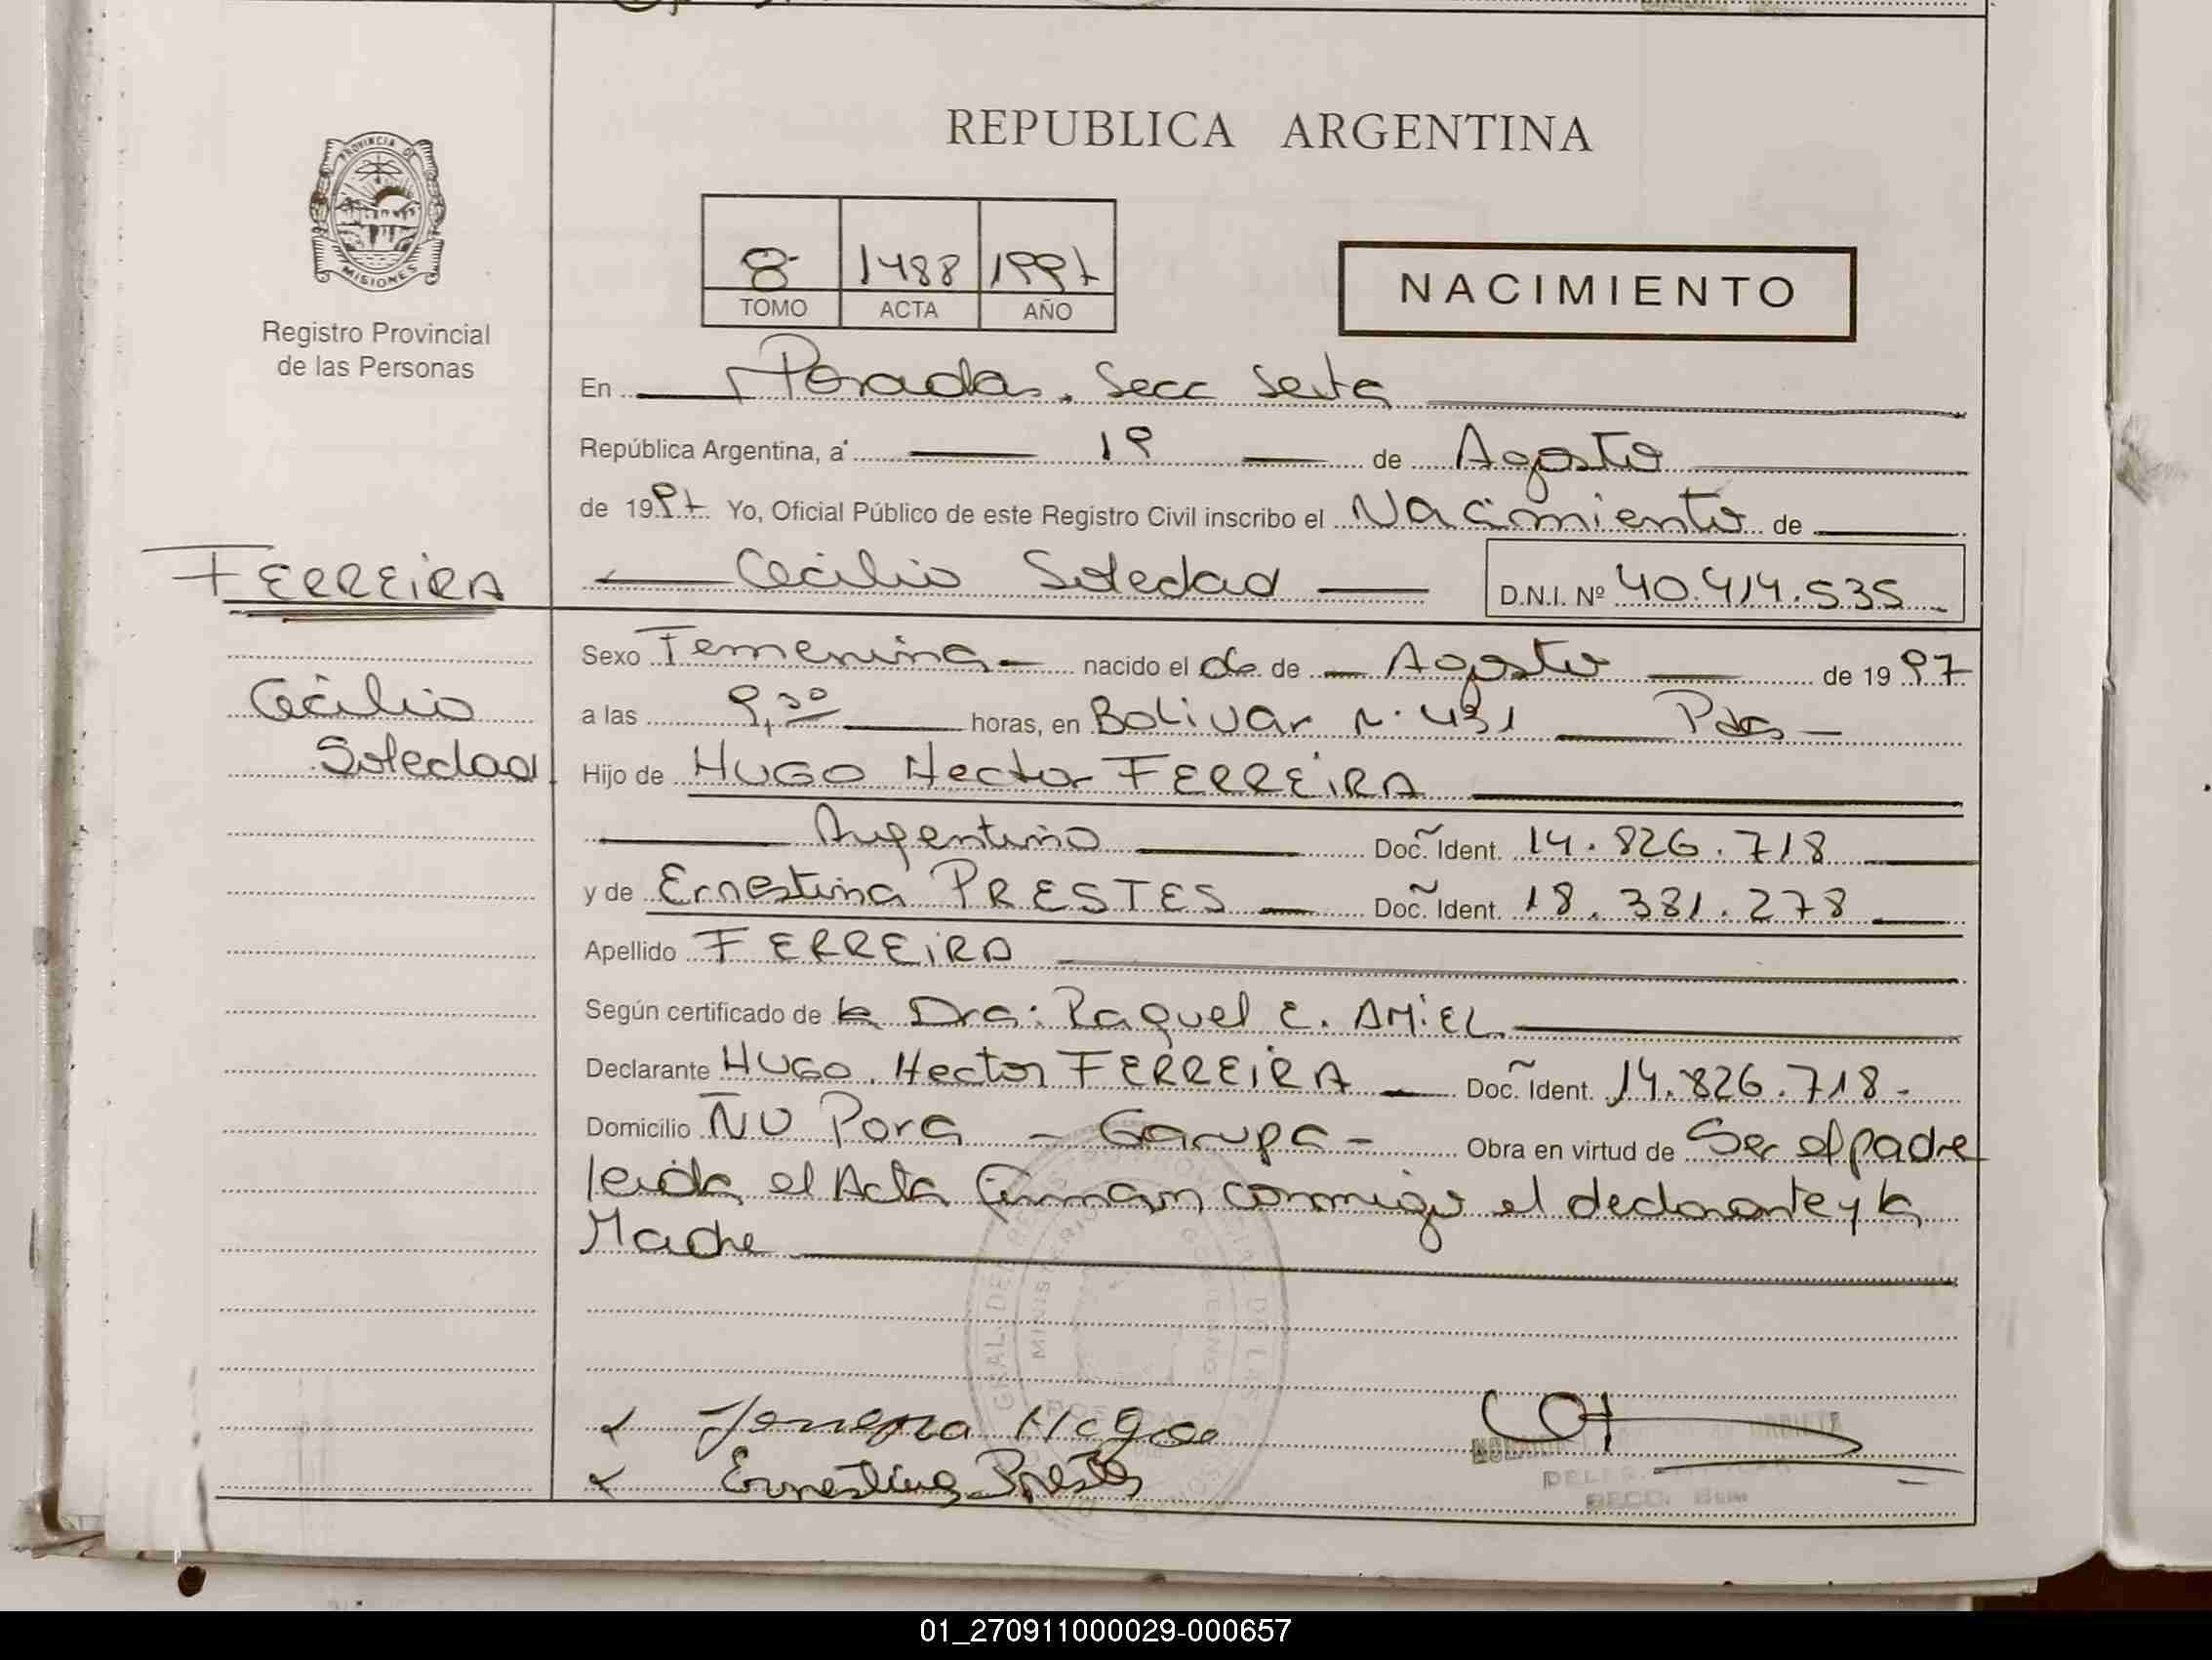 REPUBLICA ARGENTINA
PROVINCIA DE
MISIONES
Registro Provincial
de las Personas
8 1488 1997
TOMO ACTA AÑO
NACIMIENTO
En Posadas. Secc Sexta
República Argentina, a 19 de Agosto
de 1997 Yo, Oficial Público de este Registro Civil inscribo el Nacimiento de
FERREIRA
Cecilia Soledad D.N.I. Nº 40.414.535
Sexo Femenina nacido el de Agosto de 1997
Cecilia
Soledad
a las 9,30 horas, en Bolivar N. 431 Pdas
Hijo de HUGO Hector FERREIRA
Argentino Doc. Ident. 14.826.718
y de Ernestina PRESTES Doc. Ident. 18.381.278
Apellido FERREIRA
Según certificado de la Dra: Raquel E. AMIEL
Declarante HUGO Hector FERREIRA Doc. Ident. 14.826.718
Domicilio ÑU Pora - Garupa - Obra en virtud de Ser el padre
leida el Acta firman conmigo el declarante y la
Madre
MINISTERIO
GOBIERNO
POSADAS
Ferreira Hugo
Ernestina Prestes
SECC. 6ta
01_270911000029-000657